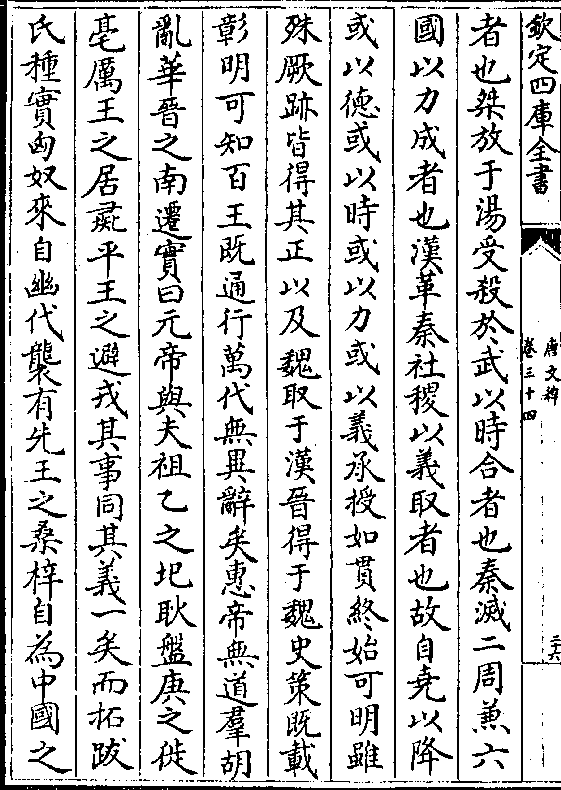 欽定四庫全書
唐文粹
卷三十四
二六
者也桀放于湯受殺於武以時合者也秦滅二周兼六
國以力成者也漢革秦社稷以義取者也故自堯以降
或以德或以時或以力或以義承授如貫終始可明雖
殊厥跡皆得其正以及魏取于漢晉得于魏史策既載
彰明可知百王既通行萬代無異辭矣惠帝無道羣胡
亂華晉之南遷實曰元帝與夫祖乙之圮耿盤庚之徙
亳厲王之居彘平王之避戎其事同其義一矣而拓跋
氏種實匈奴來自幽代襲有先王之桑梓自為中國之